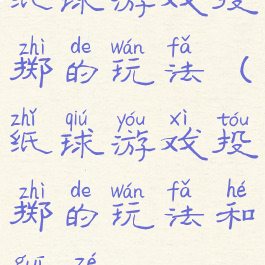 纸球游戏投
zhì de wán fǎ
掷的玩法（
zhǐ qiú yóu xì tóu
纸球游戏投
zhì de wán fǎ hé
掷的玩法和
guī zé